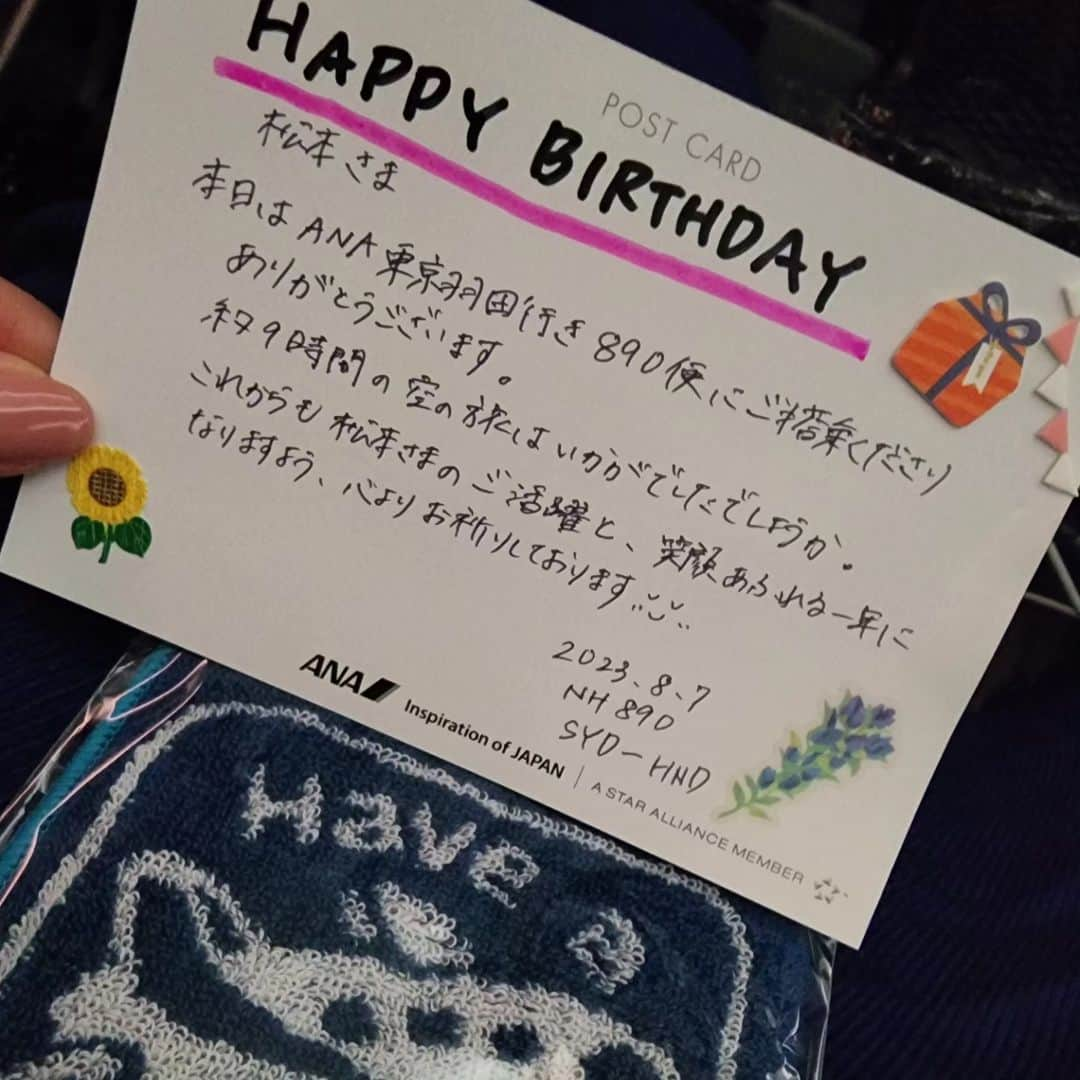 HAPPY BIRTHDAY
POST CARD
松本さま
本日はANA東京羽田行き890便にご搭乗くださり
ありがとうございます。
約9時間の空の旅はいかがでしたでしょうか。
これからも松本さまのご活躍と、笑顔あふれる一年に
なりますよう、心よりお祈りしております
2023.8.7
NH890
SYD-HND
ANA Inspiration of JAPAN
A STAR ALLIANCE MEMBER
Have